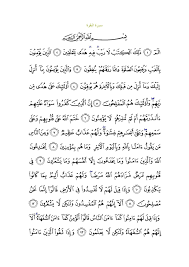 سورة البقرة
بسم الله الرحمن الرحيم
الم ۝ ذلك الكتاب لا ريب فيه هدى للمتقين ۝ الذين يؤمنون
بالغيب ويقيمون الصلوة ومما رزقنهم ينفقون ۝ والذين يؤمنون بما أنزل
إليك وما أنزل من قبلك وبالآخرة هم يوقنون ۝ أولئك على هدى من
ربهم وأولئك هم المفلحون ۝ إن الذين كفروا سواء عليهم
ءأنذرتهم أم لم تنذرهم لا يؤمنون ۝ ختم الله على قلوبهم وعلى
سمعهم وعلى أبصرهم غشوة ولهم عذاب عظيم ۝ ومن الناس
من يقول ءامنا بالله وباليوم الآخر وما هم بمؤمنين ۝ يخدعون
الله والذين ءامنوا وما يخدعون إلا أنفسهم وما يشعرون ۝ في
قلوبهم مرض فزادهم الله مرضا ولهم عذاب أليم بما كانوا
يكذبون ۝ وإذا قيل لهم لا تفسدوا في الأرض قالوا إنما نحن
مصلحون ۝ ألا إنهم هم المفسدون ولكن لا يشعرون ۝
وإذا قيل لهم ءامنوا كما ءامن الناس قالوا أنؤمن كما ءامن السفهاء ألا
إنهم هم السفهاء ولكن لا يعلمون ۝ وإذا لقوا الذين ءامنوا